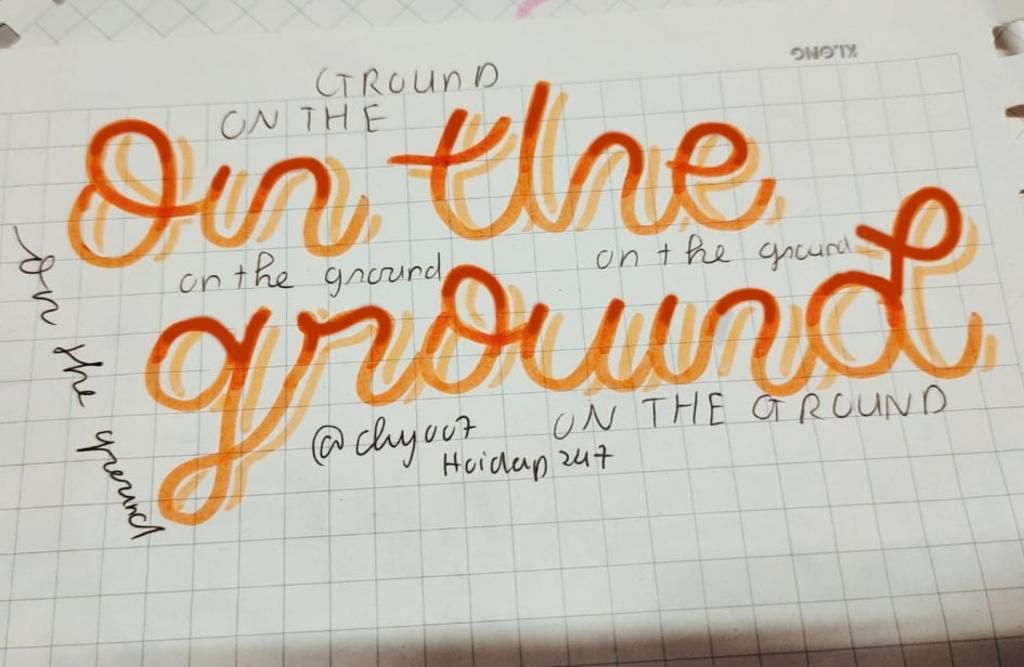 KLONG
GROUND
ON THE
On the
on the ground
on the ground
ground
On the ground
@chyoo7
ON THE GROUND
Hoidap247